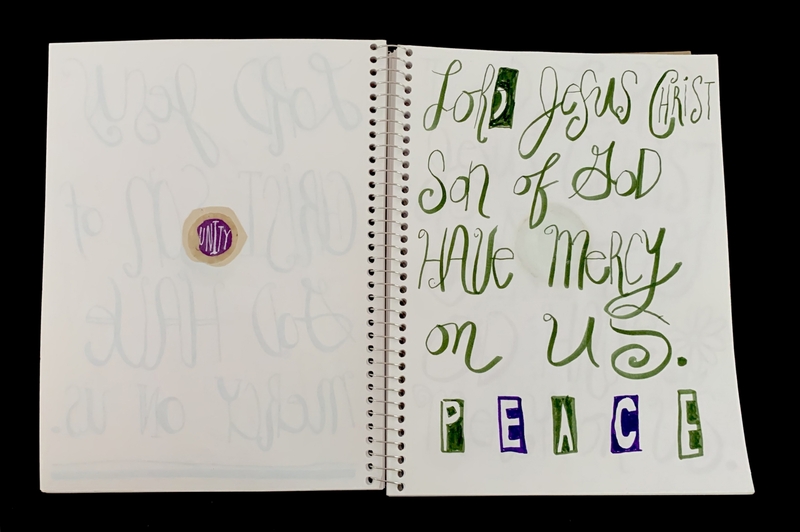 UNITY
Lord Jesus Christ
Son of God
Have Mercy
on us.
PEACE